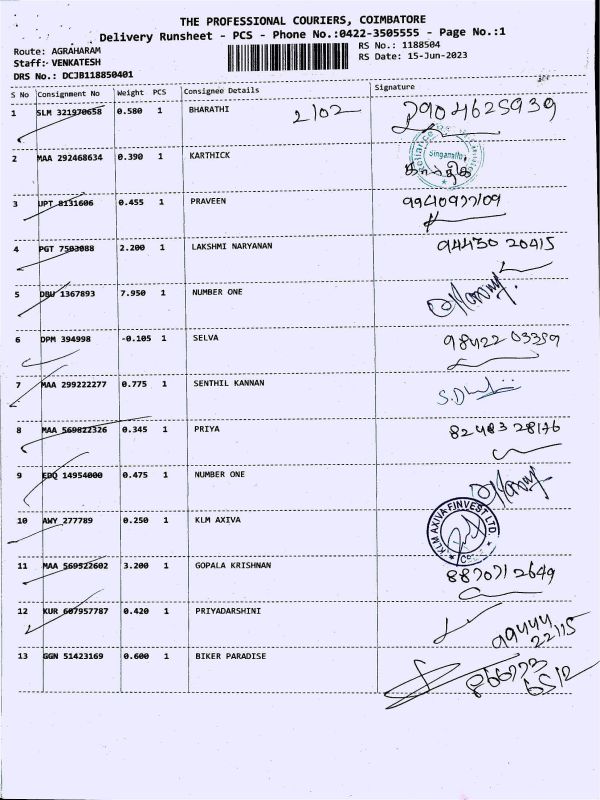 THE PROFESSIONAL COURIERS, COIMBATORE
Delivery Runsheet - PCS - Phone No.:0422-3505555 - Page No.:1
Route: AGRAHARAM
Staff: VENKATESH
DRS No.: DCJB118850401
RS No.: 1188504
RS Date: 15-Jun-2023
S No Consignment No Weight PCS Consignee Details Signature
1 SLM 321970658 0.580 1 BHARATHI 2/02 7904625939
2 MAA 292468634 0.390 1 KARTHICK Reliance Singanallur கார்த்திக்
3 UPT 8131606 0.455 1 PRAVEEN 9940977109
4 PGT 7503088 2.200 1 LAKSHMI NARYANAN 94430 20415
5 DBU 1367893 7.950 1 NUMBER ONE
6 DPM 394998 -0.105 1 SELVA 98422 03359
7 MAA 299222277 0.775 1 SENTHIL KANNAN
8 MAA 569822326 0.345 1 PRIYA 82483 28176
9 EDQ 14954000 0.475 1 NUMBER ONE
10 AWY 277789 0.250 1 KLM AXIVA KLM AXIVA FINVEST LTD
11 MAA 569522602 3.200 1 GOPALA KRISHNAN 8870712649
12 KUR 607957787 0.420 1 PRIYADARSHINI 99444 22115
13 GGN 51423169 0.600 1 BIKER PARADISE 866773 6512